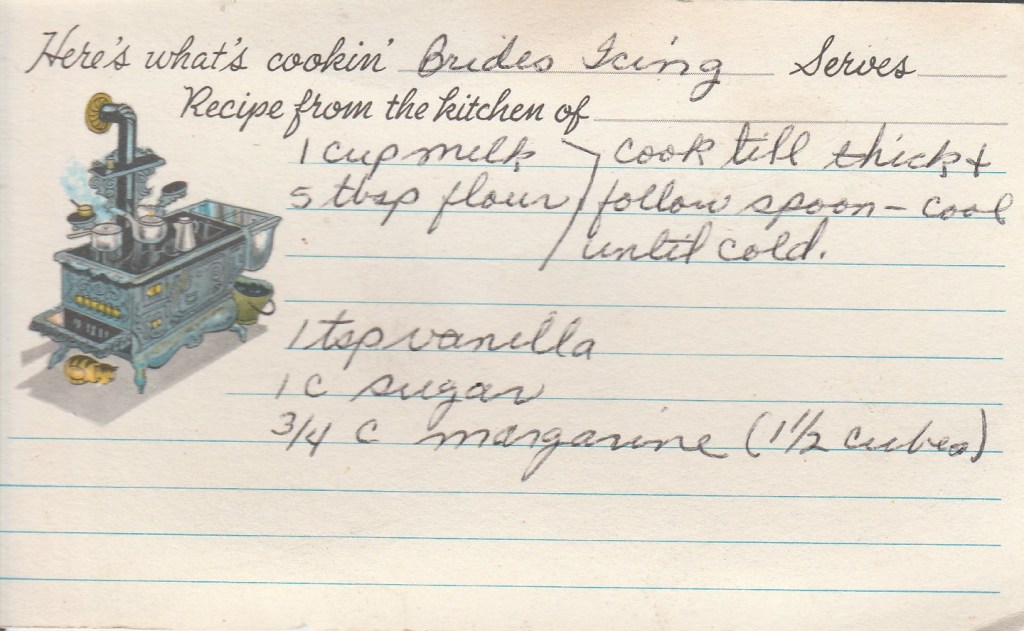 Here's what's cookin' Brides Icing Serves
Recipe from the kitchen of
1 cup milk cook till thick &
5 tbsp flour follow spoon - cool
until cold.
1 tsp vanilla
1 c sugar
3/4 c margarine (1 1/2 cubes)